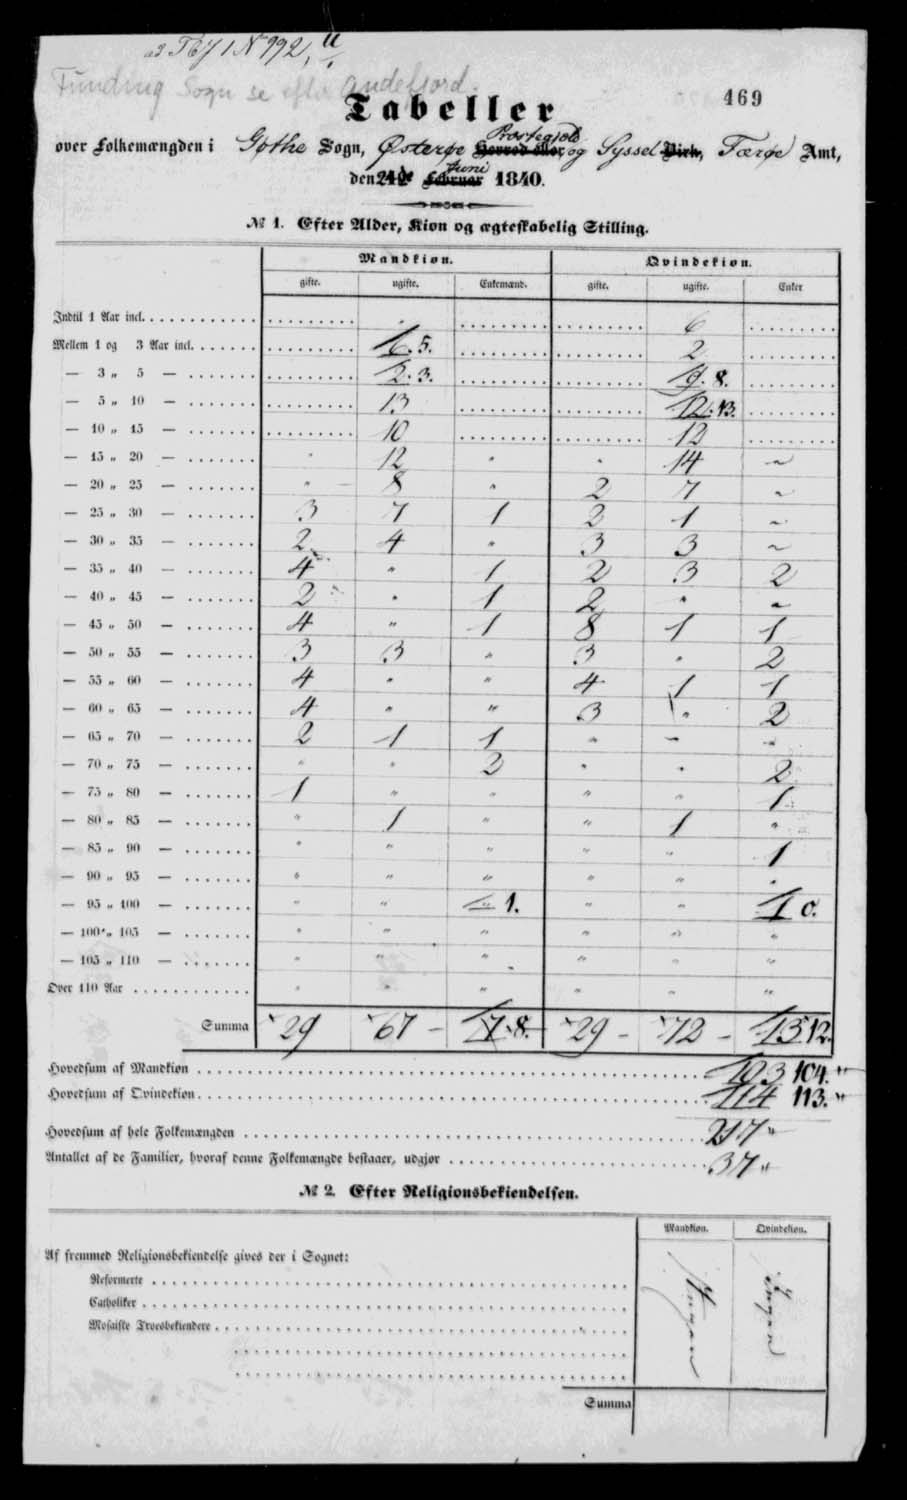 ad T Ef 1 No 992, 11
Funding Sogn se efter Andefjord.
469
Tabeller
over Folkemængden i Gøthe Sogn, Østerøe Præstegjeld og Syssel Færøe Amt,
den Juni 1840.
№ 1. Efter Alder, Kion og ægteskabelig Stilling.
Mandkion. Qvindekion.
gifte. ugifte. Enkemænd. gifte. ugifte. Enker
Indtil 1 Aar incl. 6
Mellem 1 og 3 Aar incl. 6. 5. 2
— 3 „ 5 — 2. 3. 9. 8.
— 5 „ 10 — 13 12. 13.
— 10 „ 15 — 10 12
— 15 „ 20 — " 12 " " 14 ~
— 20 „ 25 — " 8 " 2 7 ~
— 25 „ 30 — 3 7 1 2 1 ~
— 30 „ 35 — 2 4 " 3 3 ~
— 35 „ 40 — 4 " 1 2 3 2
— 40 „ 45 — 2 " 1 2 " ~
— 45 „ 50 — 4 " 1 8 1 1
— 50 „ 55 — 3 3 " 3 " 2
— 55 „ 60 — 4 " " 4 1 1
— 60 „ 65 — 4 " " 3 " 2
— 65 „ 70 — 2 1 1 " ~ "
— 70 „ 75 — " " 2 " " 2
— 75 „ 80 — 1 " " " " 1
— 80 „ 85 — " 1 " " 1 "
— 85 „ 90 — " " " " " 1
— 90 „ 95 — " " " " " "
— 95 „ 100 — " " " 1. " " 1 0.
— 100 „ 105 — " " " " " "
— 105 „ 110 — " " " " " "
Over 110 Aar " " " " " "
Summa 29 67 – 7. 8. – 29 – 72 – 13 12.
Hovedsum af Mandkion 103 104. "
Hovedsum af Qvindekion 114 113. "
Hovedsum af hele Folkemængden 217 "
Antallet af de Familier, hvoraf denne Folkemængde bestaaer, udgjør 37 "
№ 2. Efter Religionsbekiendelsen.
Mandkion. Qvindekion.
Af fremmed Religionsbekiendelse gives der i Sognet:
Reformerte
Catholiker
Mosaiske Troesbekiendere
Ingen Ingen
Summa